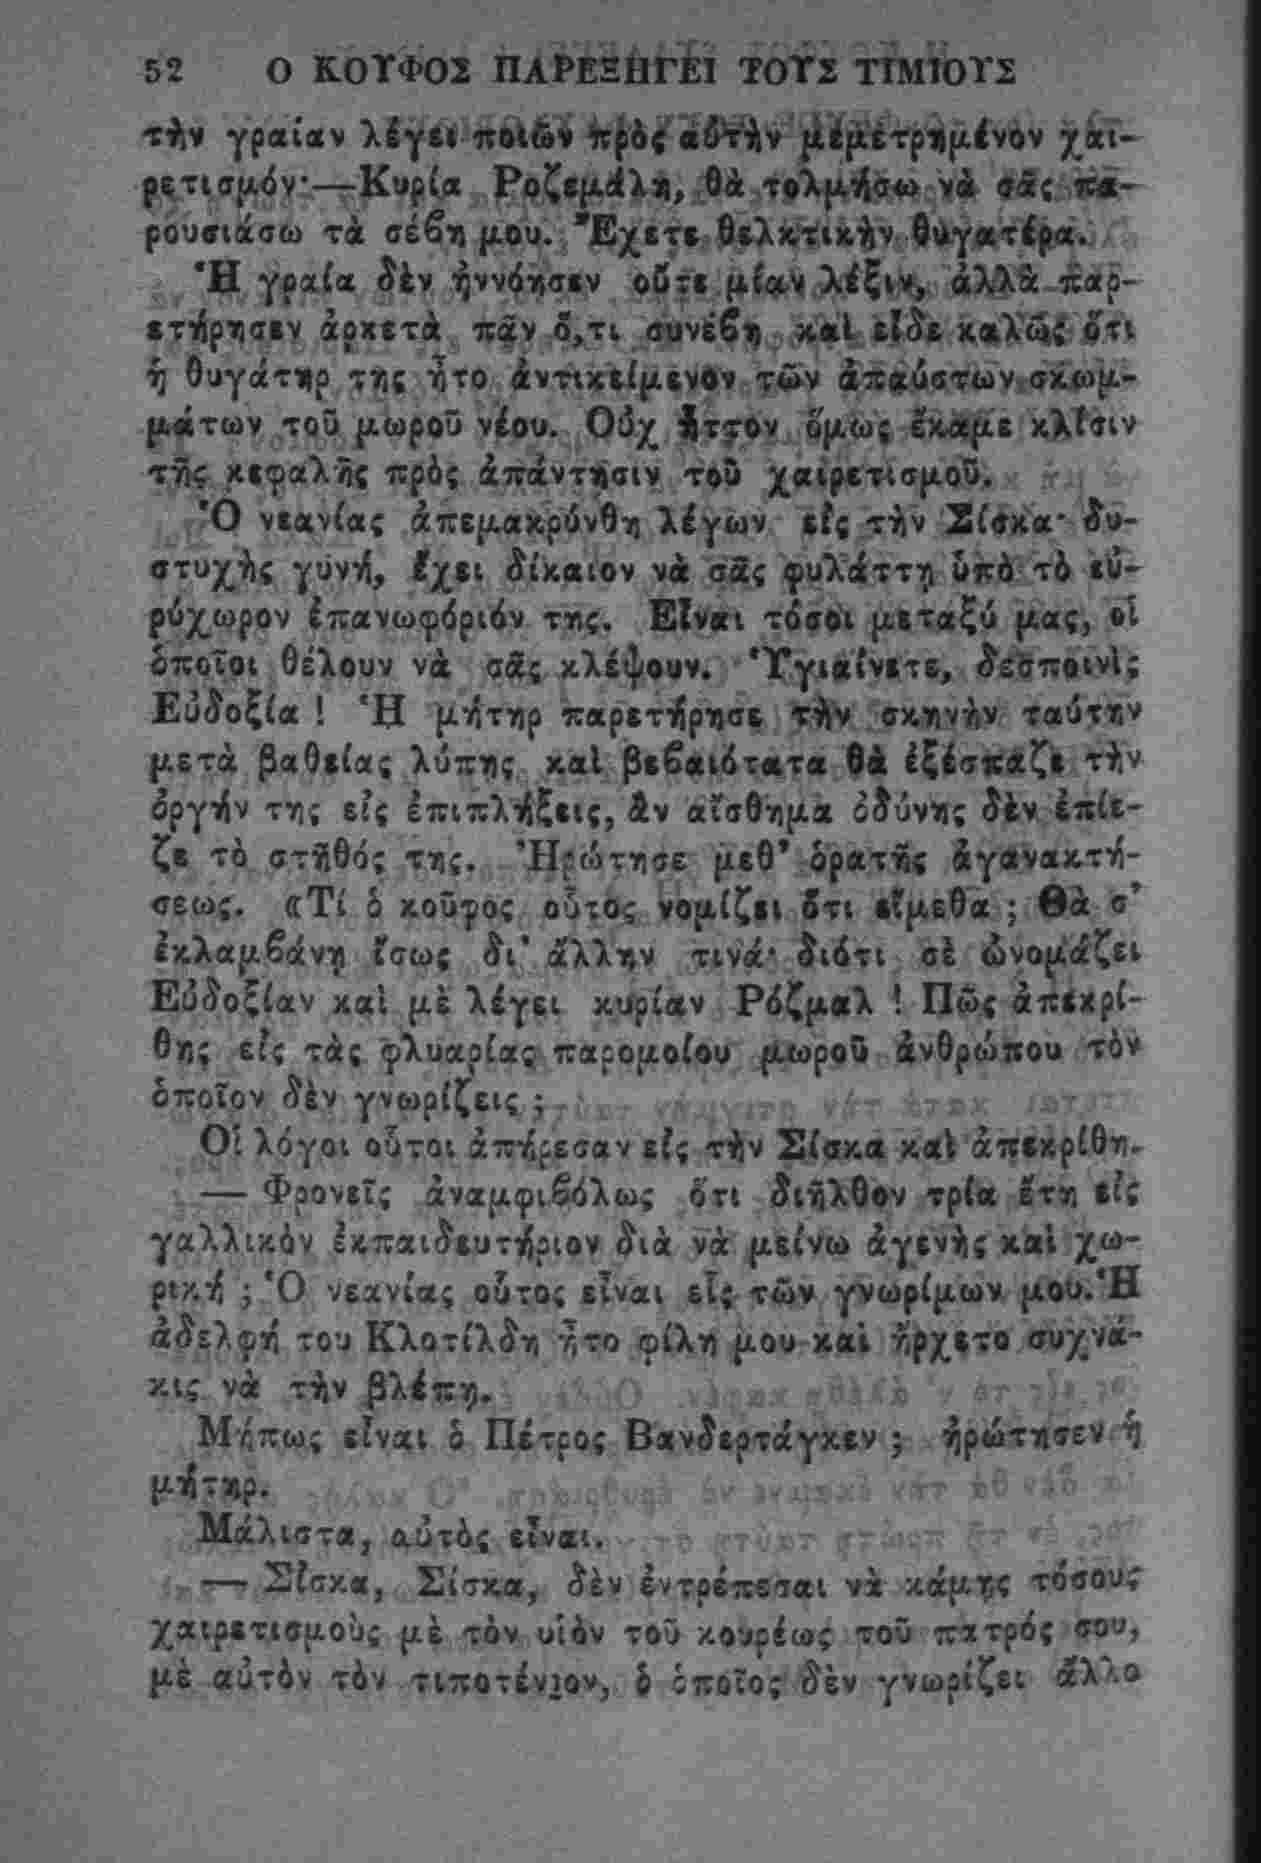 52 Ο ΚΟΥΦΟΣ ΠΑΡΕΞΗΓΕΙ ΤΟΥΣ ΤΙΜΙΟΥΣ
τὴν γραίαν λέγει ποιῶν πρὸς αὐτὴν μεμετρημένον χαι-
ρετισμόν·—Κυρία Ροζεμάλη, θὰ τολμήσω νὰ σᾶς πα-
ρουσιάσω τὰ σέβη μου. Ἔχετε θελκτικὴν θυγατέρα.
Ἡ γραία δὲν ἠννόησεν οὔτε μίαν λέξιν, ἀλλὰ παρ-
ετήρησεν ἀρκετὰ πᾶν ὅ,τι συνέβη καὶ εἶδε καλῶς ὅτι
ἡ θυγάτηρ της ἦτο ἀντικείμενον τῶν ἀπαύστων σκωμ-
μάτων τοῦ μωροῦ νέου. Οὐχ ἧττον ὅμως ἔκαμε κλίσιν
τῆς κεφαλῆς πρὸς ἀπάντησιν τοῦ χαιρετισμοῦ.
Ὁ νεανίας ἀπεμακρύνθη λέγων εἰς τὴν Σίσκα· δυ-
στυχὴς γυνή, ἔχει δίκαιον νὰ σᾶς φυλάττῃ ὑπὸ τὸ εὐ-
ρύχωρον ἐπανωφόριόν της. Εἶναι τόσοι μεταξύ μας, οἱ
ὁποῖοι θέλουν νὰ σᾶς κλέψουν. Ὑγιαίνετε, δεσποινὶς
Εὐδοξία ! Ἡ μήτηρ παρετήρησε τὴν σκηνὴν ταύτην
μετὰ βαθείας λύπης καὶ βεβαιότατα θὰ ἐξέσπαζε τὴν
ὀργήν της εἰς ἐπιπλήξεις, ἂν αἴσθημα ὀδύνης δὲν ἐπίε-
ζε τὸ στῆθός της. Ἠρώτησε μεθ' ὁρατῆς ἀγανακτή-
σεως. «Τί ὁ κοῦφος οὗτος νομίζει ὅτι εἴμεθα ; Θὰ σ'
ἐκλαμβάνῃ ἴσως δι' ἄλλην τινά· διότι σὲ ὠνομάζει
Εὐδοξίαν καὶ μὲ λέγει κυρίαν Ρόζμαλ ! Πῶς ἀπεκρί-
θης εἰς τὰς φλυαρίας παρομοίου μωροῦ ἀνθρώπου τὸν
ὁποῖον δὲν γνωρίζεις ;
Οἱ λόγοι οὗτοι ἀπήρεσαν εἰς τὴν Σίσκα καὶ ἀπεκρίθη.
— Φρονεῖς ἀναμφιβόλως ὅτι διῆλθον τρία ἔτη εἰς
γαλλικὸν ἐκπαιδευτήριον διὰ νὰ μείνω ἀγενὴς καὶ χω-
ρική ; Ὁ νεανίας οὗτος εἶναι εἷς τῶν γνωρίμων μου. Ἡ
ἀδελφή του Κλοτίλδη ἦτο φίλη μου καὶ ἤρχετο συχνά-
κις νὰ τὴν βλέπῃ.
Μήπως εἶναι ὁ Πέτρος Βανδερτάγκεν ; ἠρώτησεν ἡ
μήτηρ.
Μάλιστα, αὐτὸς εἶναι.
— Σίσκα, Σίσκα, δὲν ἐντρέπεσαι νὰ κάμῃς τόσους
χαιρετισμοὺς μὲ τὸν υἱὸν τοῦ κουρέως τοῦ πατρός σου,
μὲ αὐτὸν τὸν τιποτένιον, ὁ ὁποῖος δὲν γνωρίζει ἄλλο